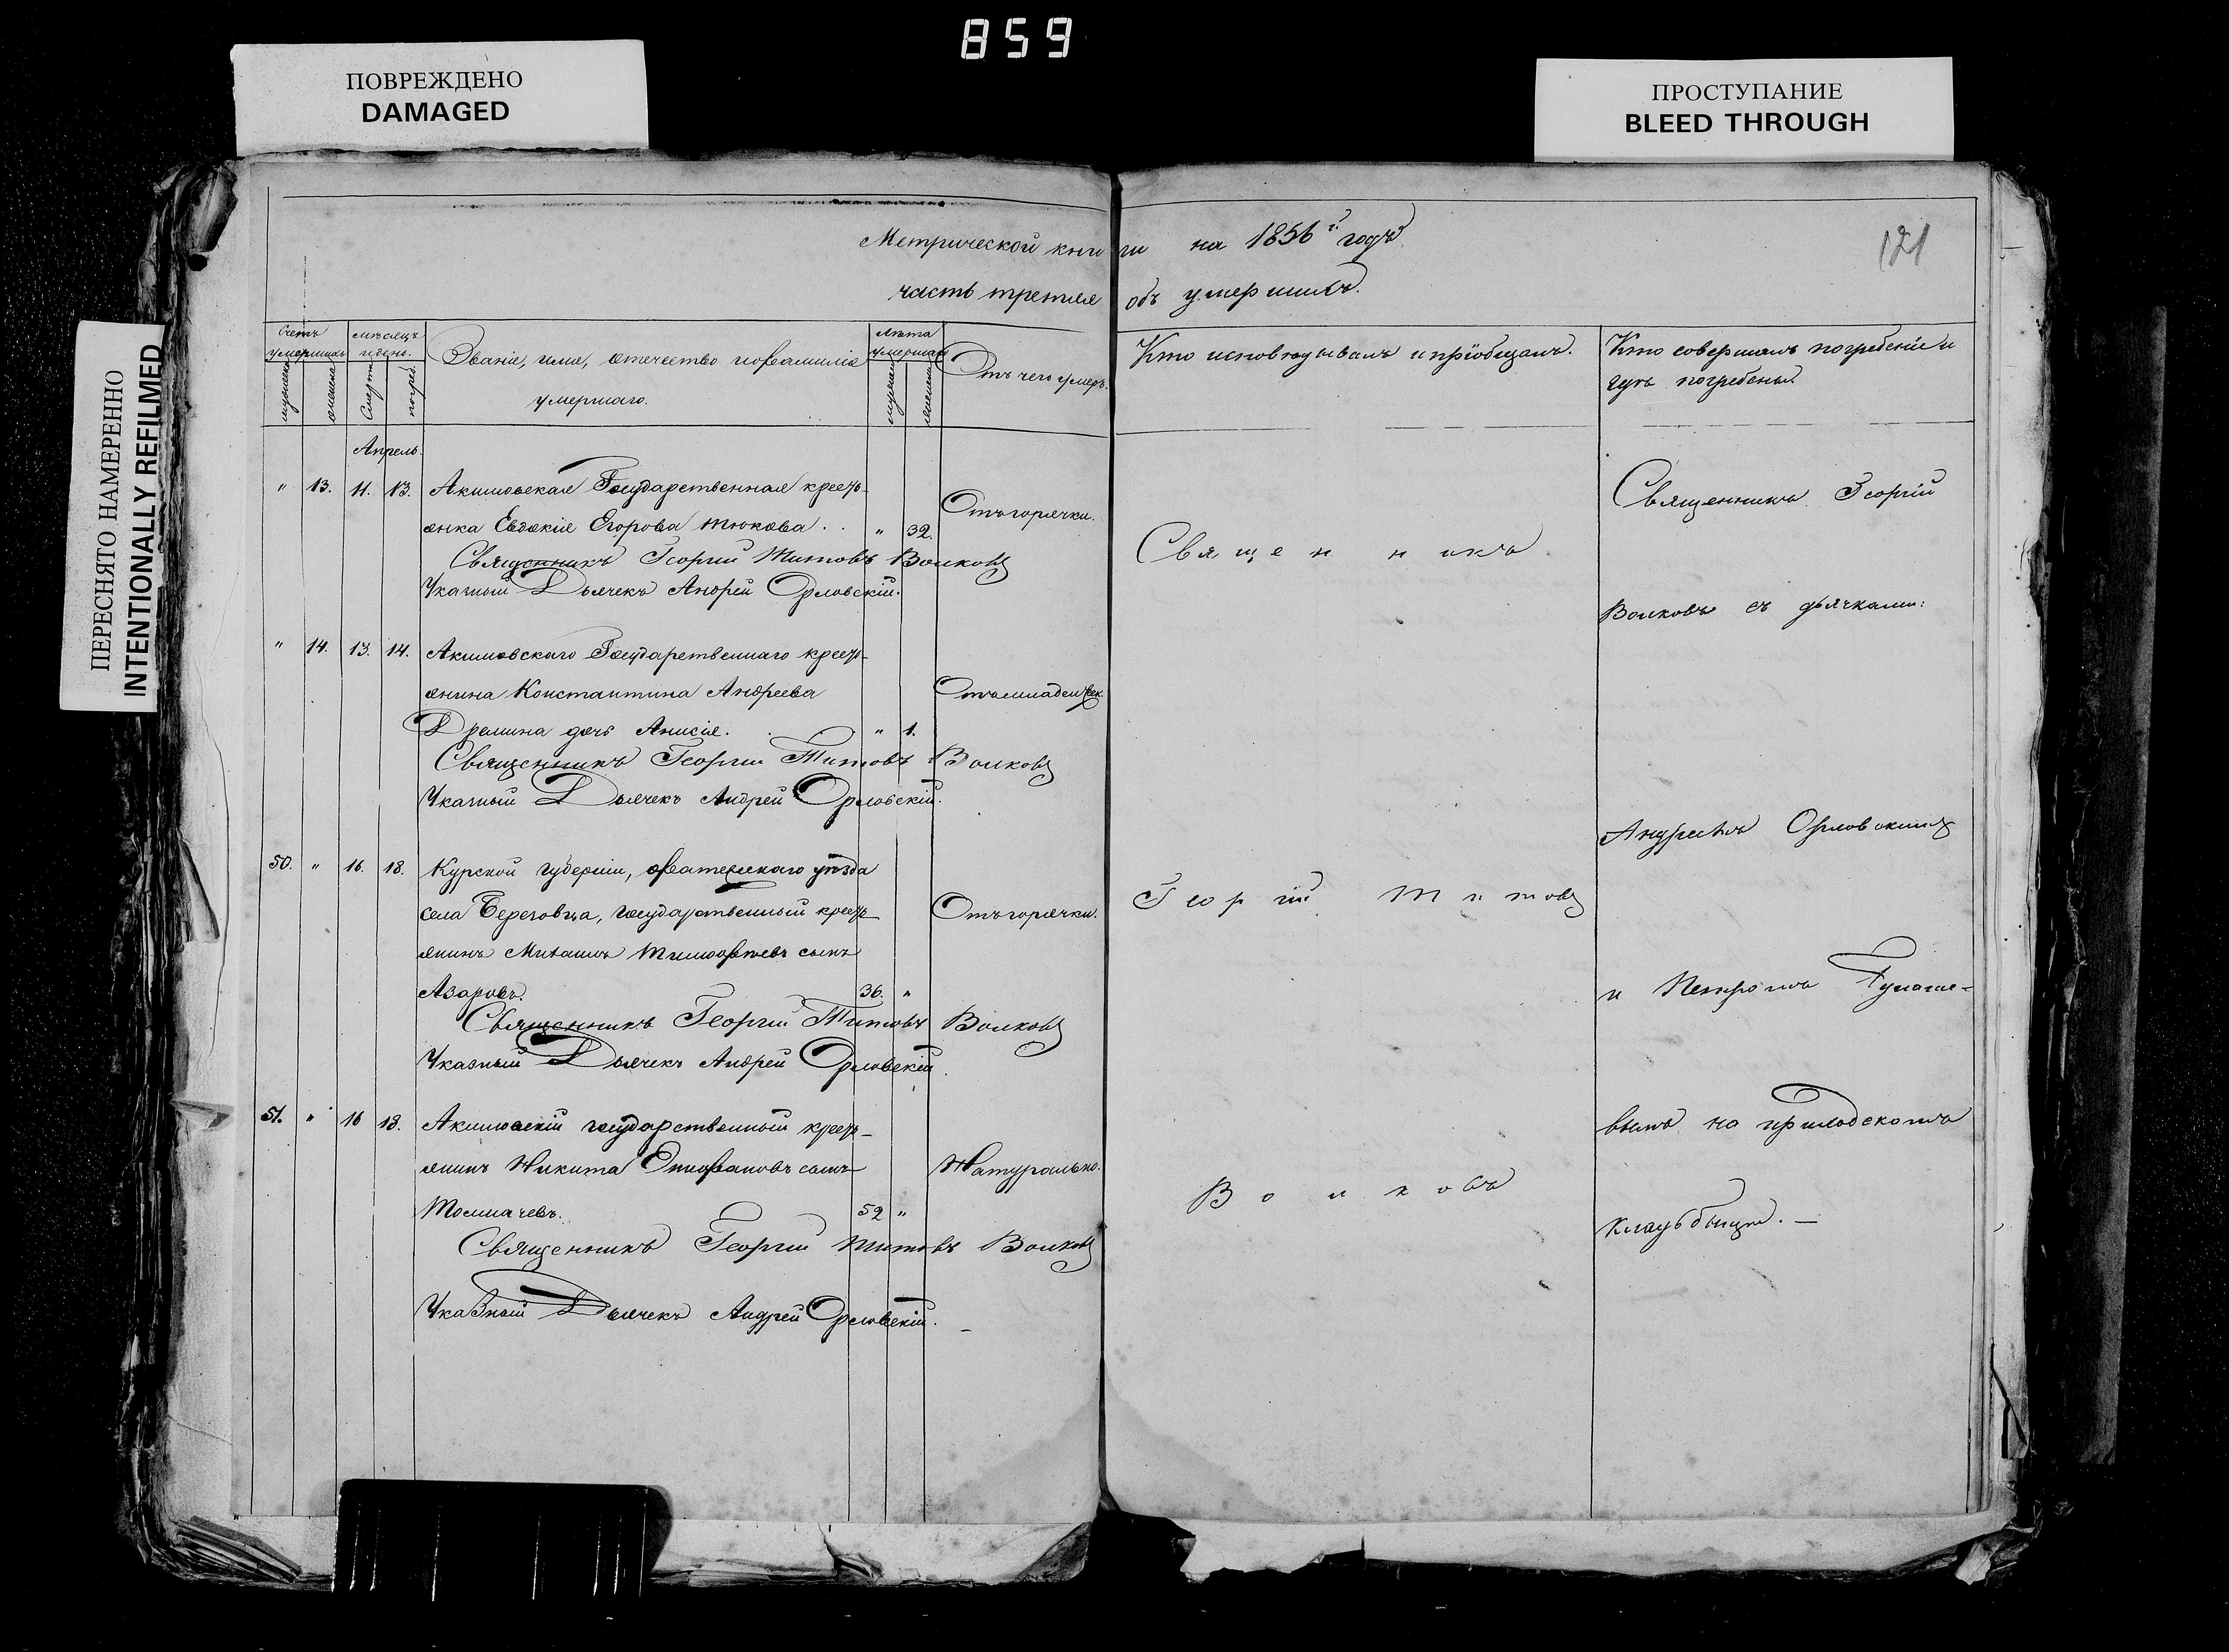 859
ПОВРЕЖДЕНО
DAMAGED
ПРОСТУПАНИЕ
BLEED THROUGH
ПЕРЕСНЯТО НАМЕРЕННО
INTENTIONALLY REFILMED
121
Метрической книги на 1856 г. годъ
часть третья объ умершихъ.
Счетъ умершихъ
мѣсяцъ и день.
Званіе, имя, отечество и фамилія умершаго.
лѣта умершаго
Отъ чего умеръ.
Кто исповѣдывалъ и пріобщалъ.
Кто совершалъ погребеніе и
гдѣ погребены.
мужеска
женска
Смерти
погреб.
мужеска
женска
Апрель.
" 13. 11. 13. Акимовская Государственная кресть-
янка Евдокія Егорова Тюкова . . " 32. Отъ горячки.
Священникъ Георгій Титовъ Волковъ
Указный Дьячекъ Андрей Орловскій.
" 14. 13. 14. Акимовскаго Государственнаго кресть-
янина Константина Андреева Отъ младенчек.
Дремина дочь Анисія. " 1.
Священникъ Георгій Титовъ Волковъ
Указный Дьячекъ Андрей Орловскій.
50. " 16. 18. Курской губерніи, фатежскаго уѣзда
села Березовца, государственный кресть- Отъ горячки.
янинъ Михаилъ Тимофѣевъ сынъ
Азаровъ. 36. "
Священникъ Георгій Титовъ Волковъ
Указный Дьячекъ Андрей Орловскій.
51. " 16 18. Акимовскій государственный кресть-
янинъ Никита Епифановъ сынъ Натурально.
Толмачевъ. 52 "
Священникъ Георгій Титовъ Волковъ
Указный Дьячекъ Андрей Орловскій.
Священникъ
Георгій Титовъ
Волковъ
Священникъ Георгій
Волковъ съ дьячками:
Андреемъ Орловскимъ
и Петромъ
на приходскомъ
кладьбищѣ. —